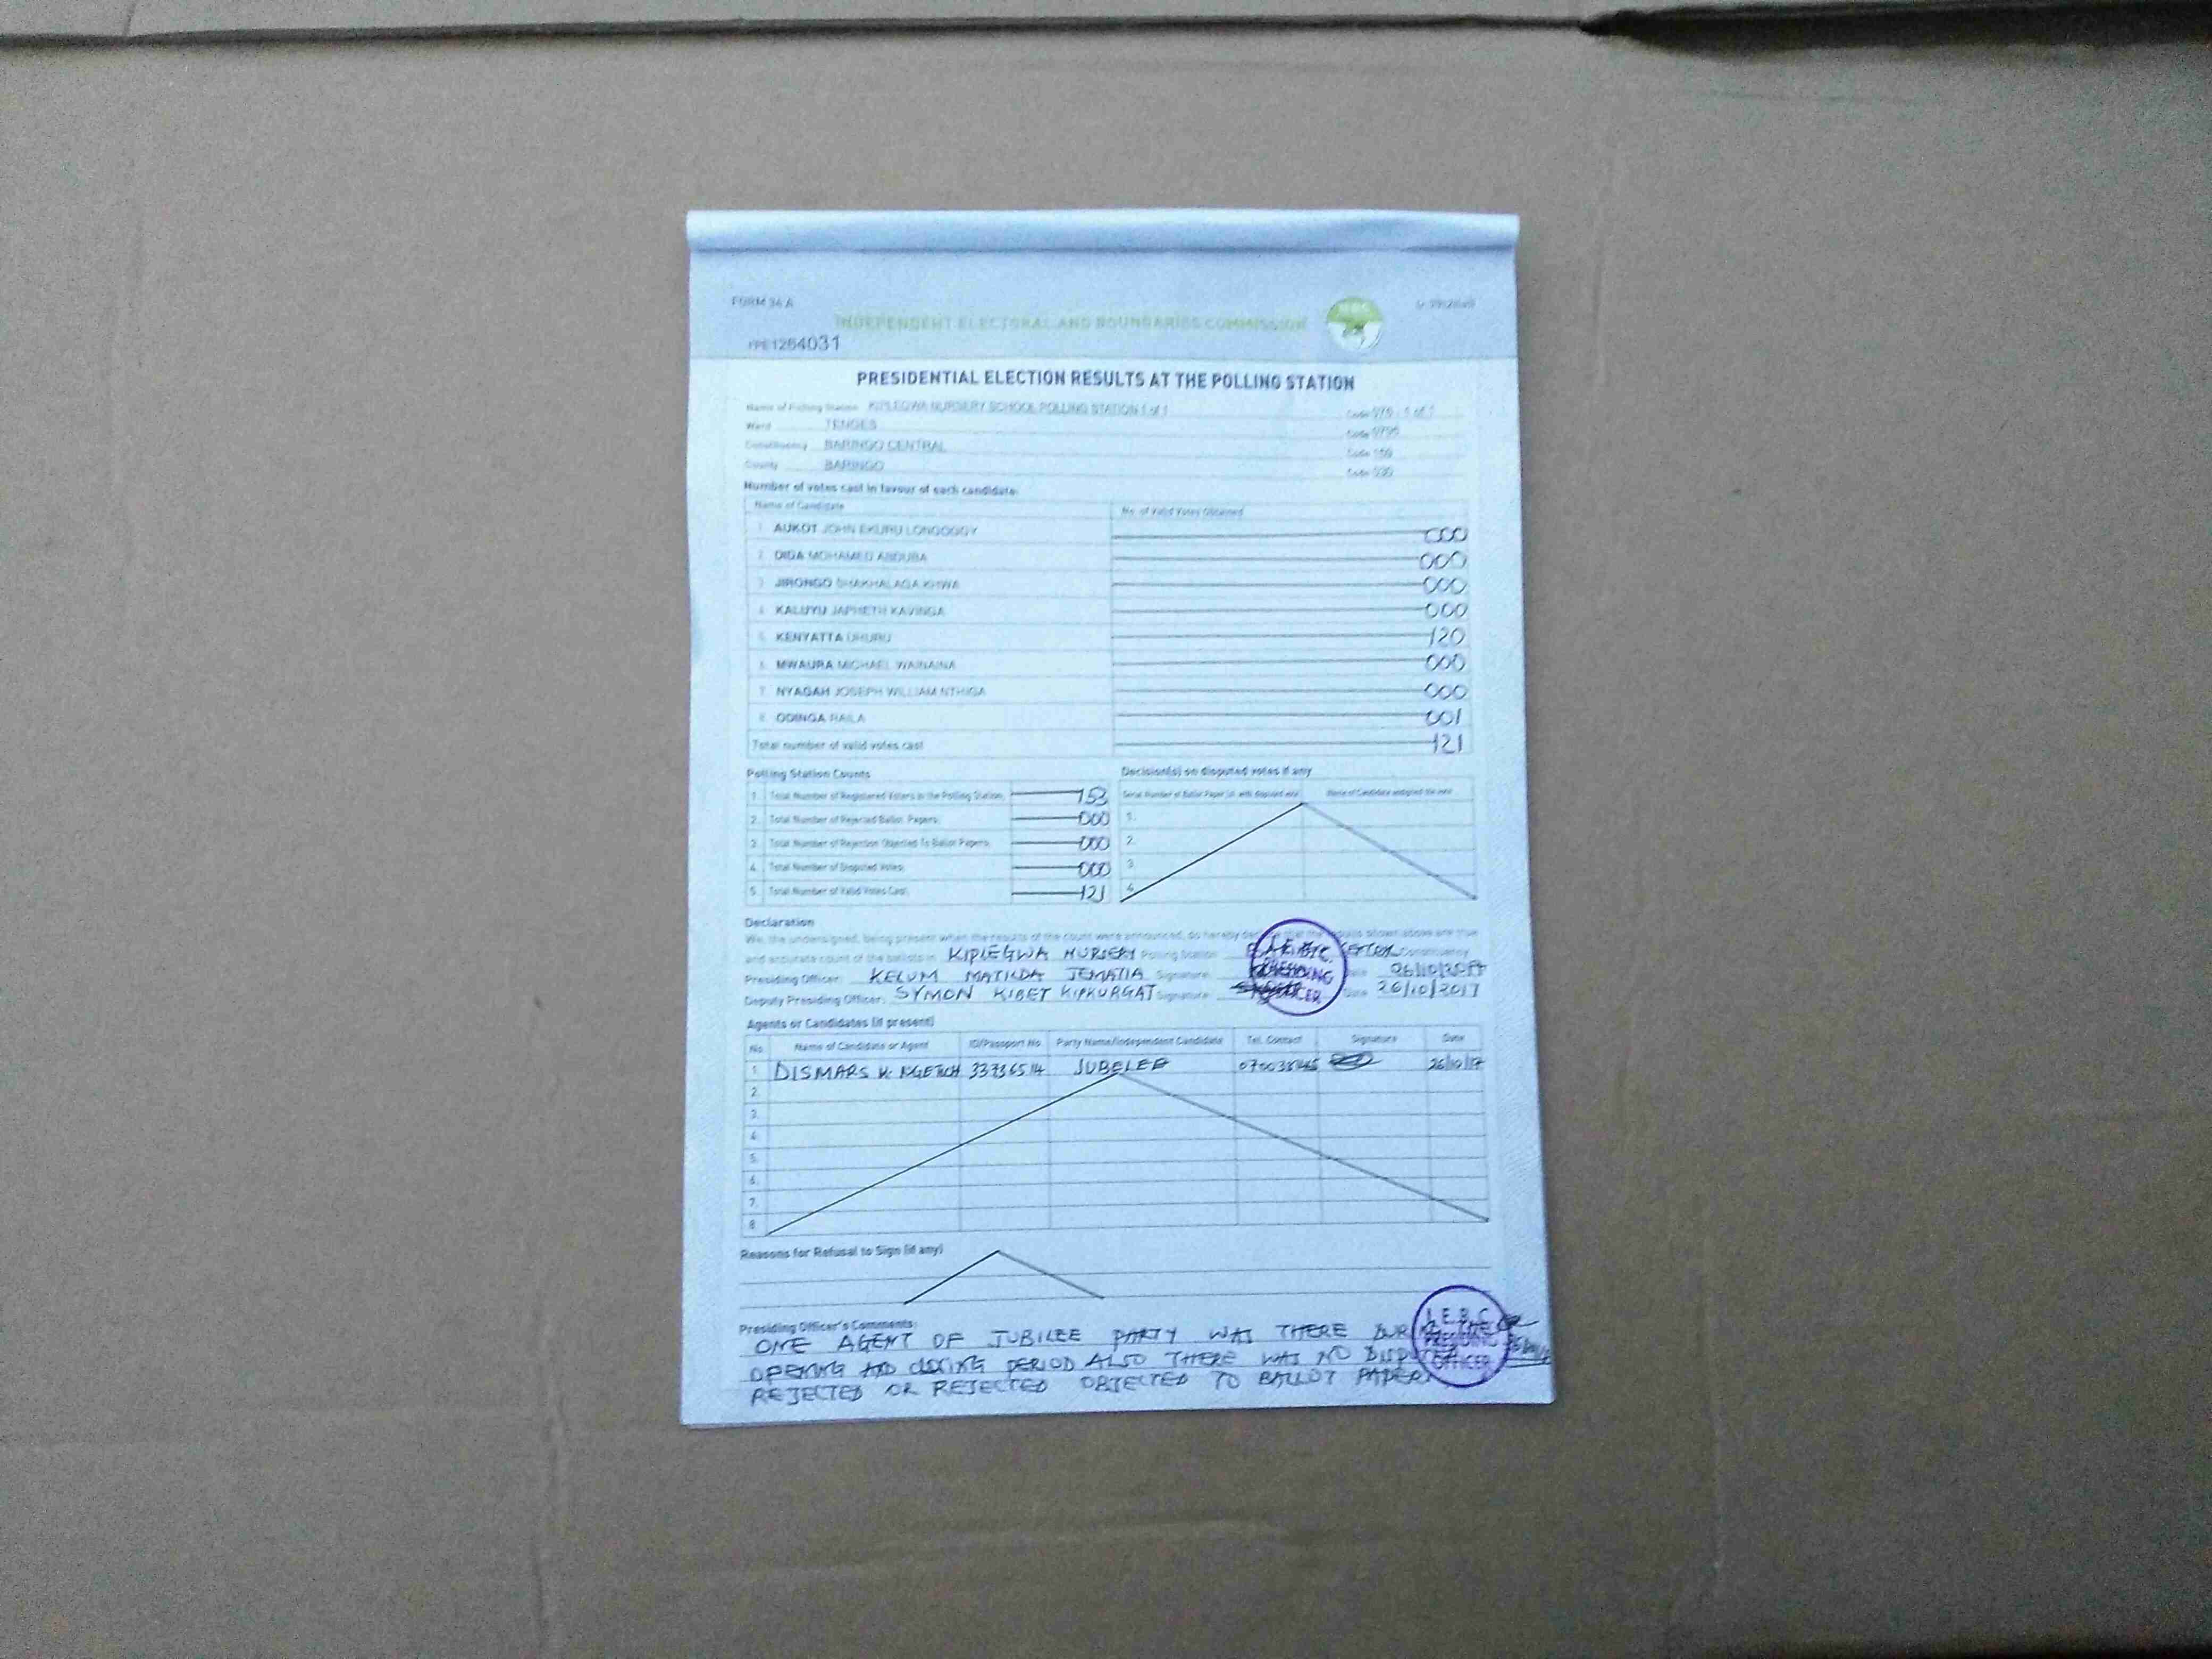 FORM 34 A
INDEPENDENT ELECTORAL AND BOUNDARIES COMMISSION
1264031
PRESIDENTIAL ELECTION RESULTS AT THE POLLING STATION
Name of Polling Station KIPLEGWA NURSERY SCHOOL POLLING STATION 1 of 1
Ward TENGES
Constituency BARINGO CENTRAL
County BARINGO
Number of votes cast in favour of each candidate:
Name of Candidate No. of Valid Votes Obtained
1. AUKOT JOHN EKURU LONGOGGY 000
2. DIDA MOHAMED ABDUBA 000
3. JIRONGO SHAKHALAGA KHWA 000
4. KALUYU JAPHETH KAVINGA 000
5. KENYATTA UHURU 120
6. MWAURA MICHAEL WAINAINA 000
7. NYAGAH JOSEPH WILLIAM NTHIGA 000
8. ODINGA RAILA 001
Total number of valid votes cast 121
Polling Station Counts
1. Total Number of Registered Voters in the Polling Station: 153
2. Total Number of Rejected Ballot Papers: 000
3. Total Number of Rejection Objected To Ballot Papers: 000
4. Total Number of Disputed Votes: 000
5. Total Number of Valid Votes Cast: 121
Decision(s) on disputed votes if any
Serial Number of Ballot Paper (s) with disputed vote Name of Candidate assigned the vote
1.
2.
3.
4.
Declaration
We, the undersigned, being present when the results of the count were announced, do hereby declare that the results shown above are true
and accurate count of the ballots in KIPLEGWA NURSERY Polling Station Constituency
Presiding Officer: KELUM MATILDA JEMATIA Signature: Date 26/10/2017
Deputy Presiding Officer: SYMON KIBET KIPKURGAT Signature: Date 26/10/2017
PRESIDING
OFFICER
Agents or Candidates (if present)
No. Name of Candidate or Agent ID/Passport No Party Name/Independent Candidate Tel. Contact Signature Date
1. DISMARS K. NGETICH 33736514 JUBELEE 26/10/17
2.
3.
4.
5.
6.
7.
8.
Reasons for Refusal to Sign (if any)
Presiding Officer's Comments:
ONE AGENT OF JUBILEE PARTY WAS THERE DURING THE
OPENING AND CLOSING PERIOD ALSO THERE WAS NO DISPUTED
REJECTED OR REJECTED OBJECTED TO BALLOT PAPER
I.E.B.C
PRESIDING
OFFICER